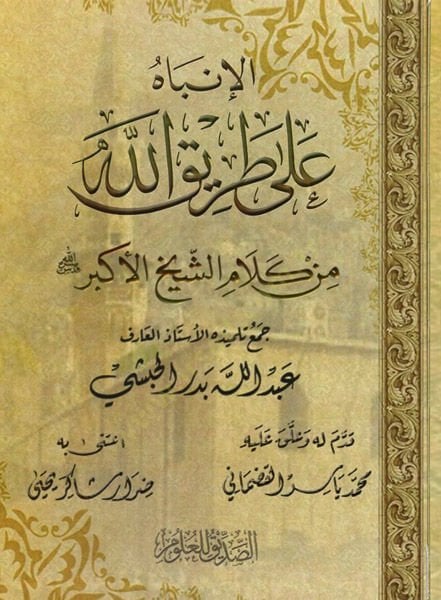 الإنباه
على طريق الله
من كلام الشيخ الأكبر
جمع تلميذه الأستاذ العارف
عبد الله بدر الحبشي
قدم له وعلق عليه
محمد ياسر القضماني
اعتنى به
ضرار شاكر يحيى
الصديق للعلوم